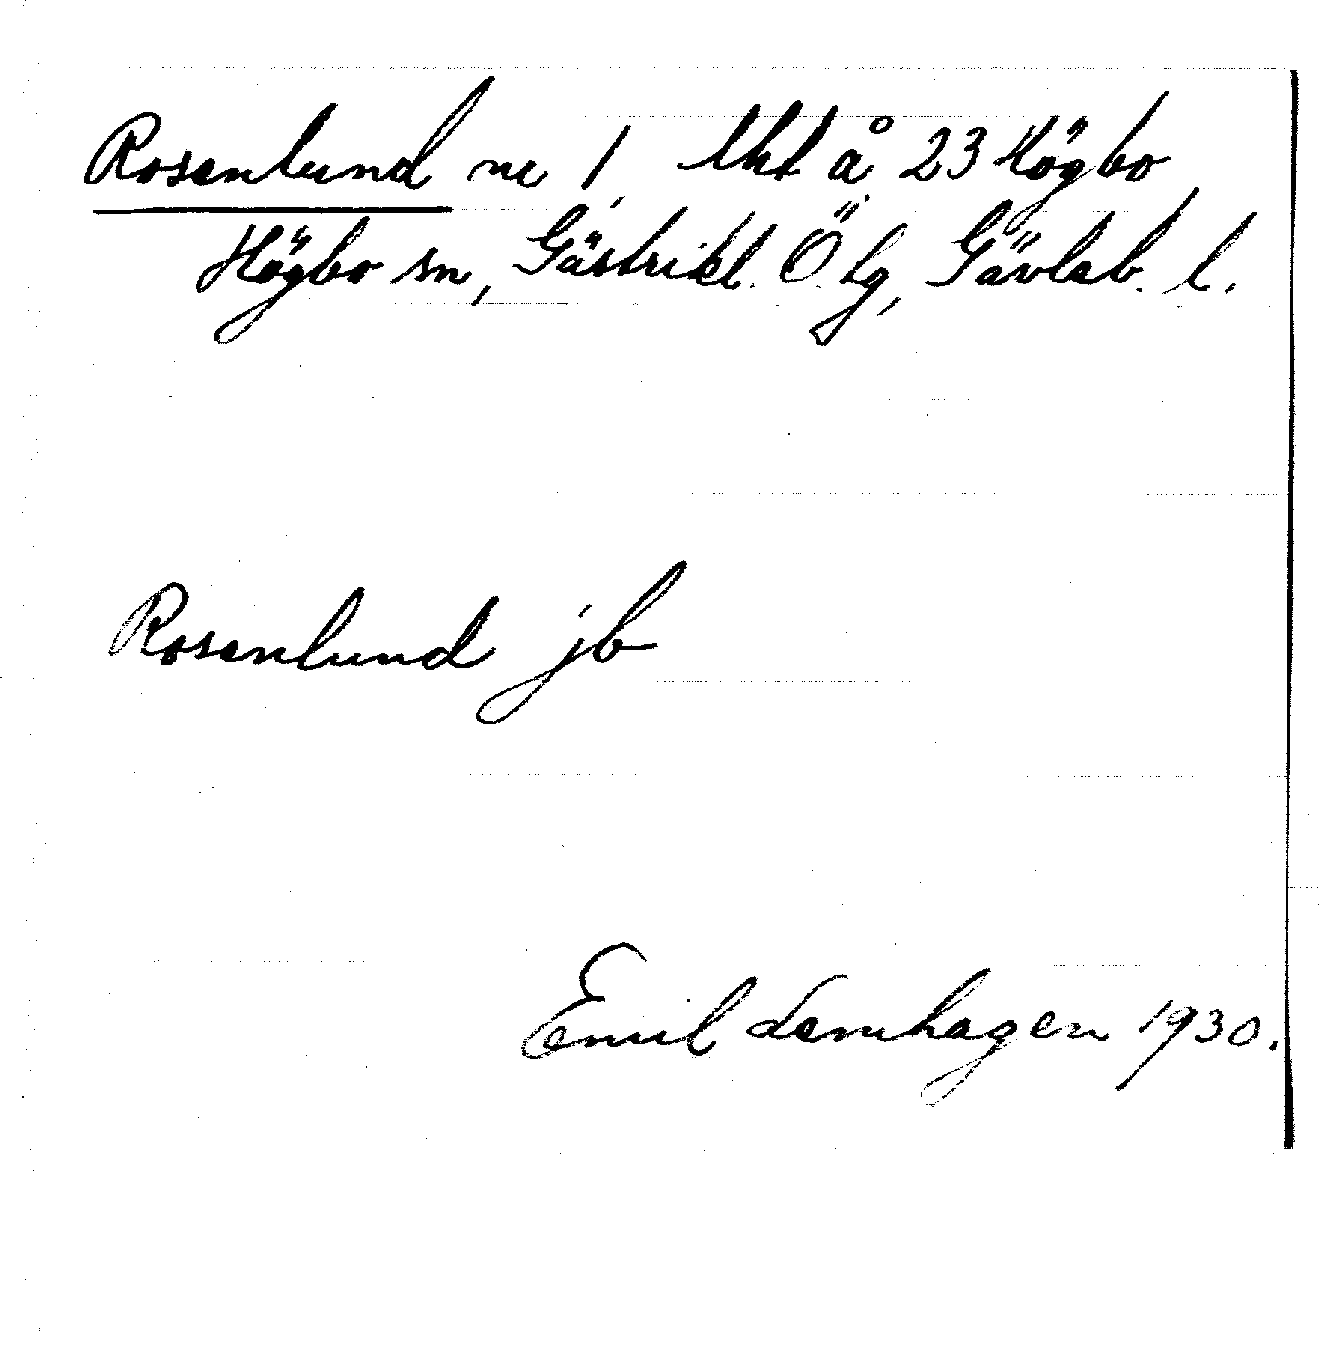 Rosenlund nr 1, Utkt å 23 Högbo
Högbo sn, Gästrikl. Ö. tg, Gävleb. l.
Rosenlund jb
Emil Lemhagen 1930.